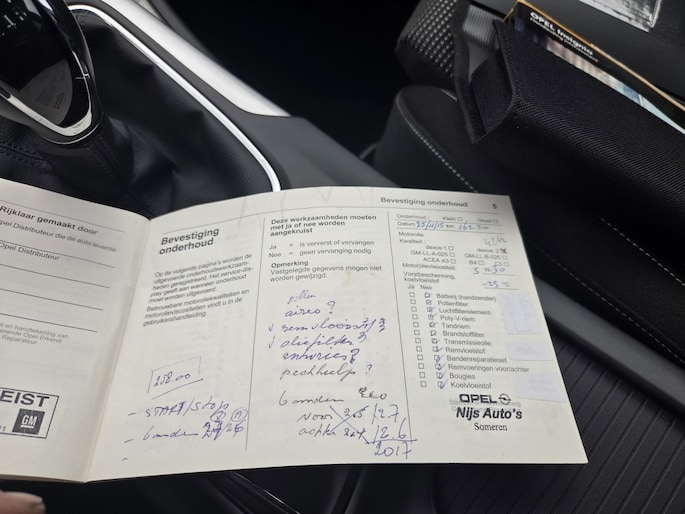 OPEL Insignia
Rijklaar gemaakt door
Opel Distributeur die de auto leverde
Opel Distributeur
EIST
GM
Bevestiging
onderhoud
Op de volgende pagina's worden de
uitgevoerde onderhoudswerkzaam-
heden geregistreerd. Het service-dis-
play geeft aan wanneer onderhoud
moet worden uitgevoerd.
Betrouwbare motoroliekwaliteiten en
motorolieviscositeiten vindt u in de
gebruikershandleiding.
258.00
- START/stop
- banden
Deze werkzaamheden moeten
met ja of nee worden
aangekruist
Ja = is ververst of vervangen
Nee = geen vervanging nodig
Opmerking
Vastgelegde gegevens mogen niet
worden gewijzigd.
pollen
airco ?
remvloeistof ?
oliefilter ?
pechhulp ?
banden
voor 2.7
achter 2.6
2017
Bevestiging onderhoud 5
Onderhoud: Klein Groot
Datum km
Motorolie
Kwaliteit:
dexos 1
dexos 2
GM-LL-A-025
GM-LL-B-025
ACEA A3 B4
Motorolieviscositeit: 5 W 30
Vorstbescherming,
koelvloeistof -35 °C
Ja Nee
Batterij (handzender)
Pollenfilter
Luchtfilterelement
Poly-V-riem
Tandriem
Brandstoffilter
Transmissieolie
Remvloeistof
Bandenreparatieset
Remvoeringen voor/achter
Bougies
Koelvloeistof
OPEL
Nijs Auto's
Someren